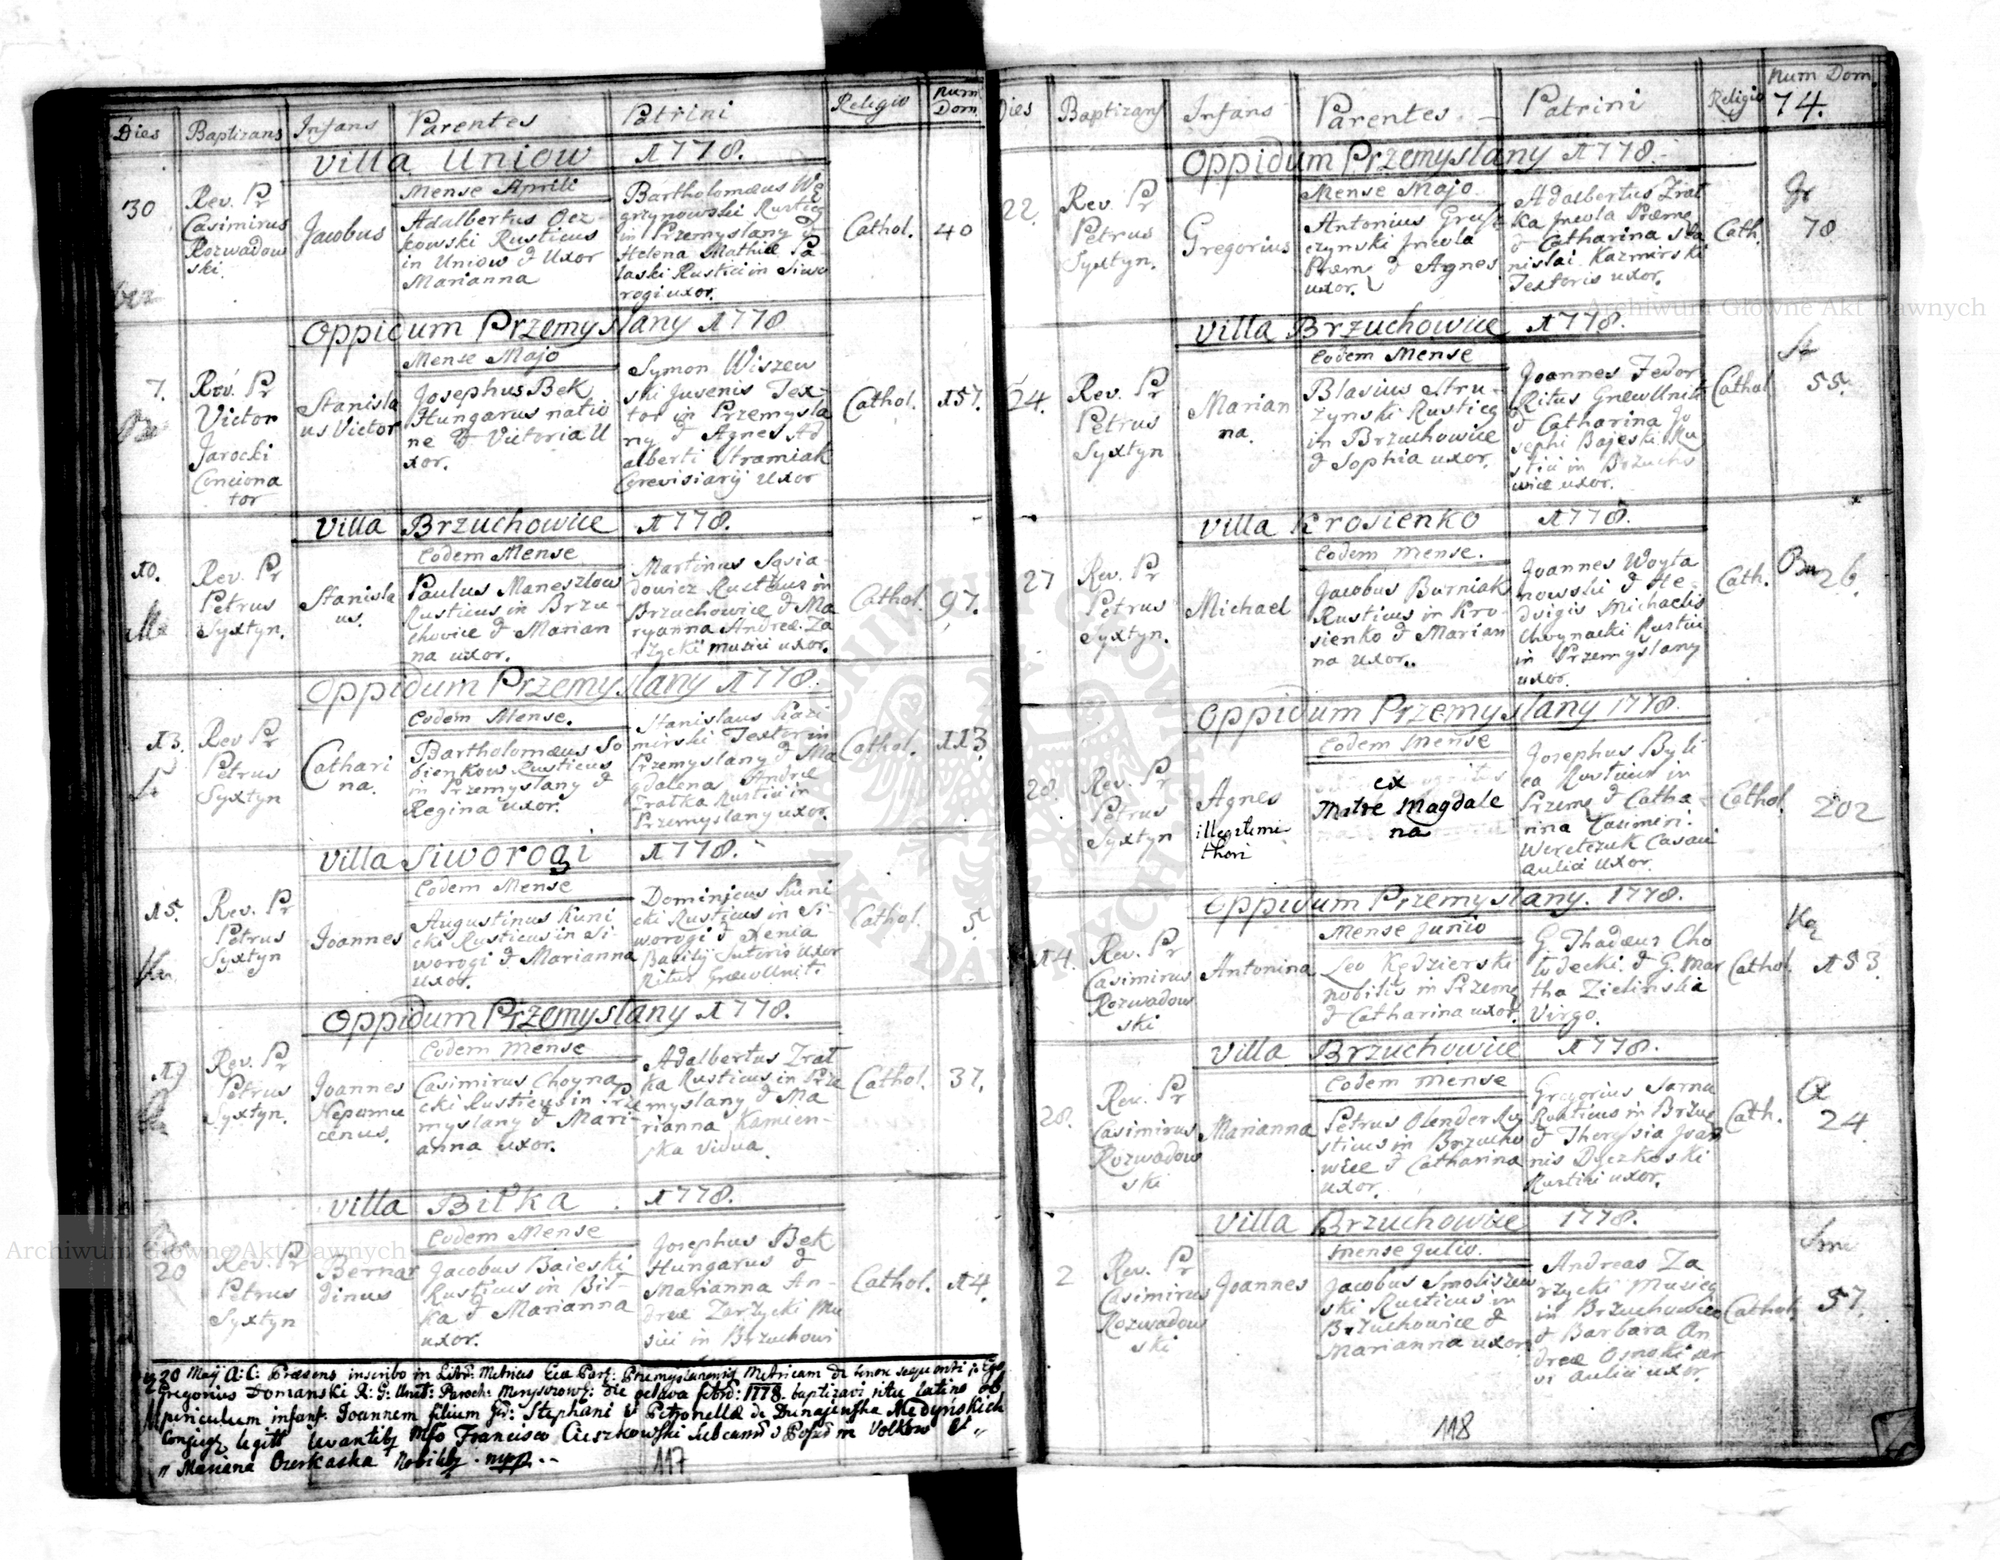 Dies Baptizans Infans Parentes Patrini Religio Num Dom
Villa Uniow 1778.
Mense Aprili
30
Rev. Pr
Casimirus
Rozwadow
ski.
Jacobus
Adalbertus Ocz-
kowski Rusticus
in Uniow & Uxor
Marianna
Bartholomæus We
grzynowski Rustics
in Przemyslany &
Helena Mathiæ Pa
laski Rustici in Siwo
rogi uxor.
Cathol.
40
Oppidum Przemyslany 1778
Mense Majo
7.
Rev. Pr
Victor
Jarocki
Conciona
tor
Stanisla
us Victor
Josephus Bek
Hungarus natio
ne & Victoria U
xor.
Symon Wiszew
ski Juvenis Tex-
tor in Przemysla
ny & Agnes Ad
alberti Stramiak
Cerevisiarij Uxor
Cathol.
157.
Villa Brzuchowice 1778.
Eodem Mense
10.
Rev. Pr
Petrus
Syxtyn.
Stanisla
us.
Paulus Maneszlow
Rusticus in Brzu-
chowice & Marian
na uxor.
Martinus Sąsia-
dowicz Rusticus in
Brzuchowice & Ma
ryanna Andreæ Za
rzycki musici uxor.
Cathol.
97.
Oppidum Przemyslany 1778.
Eodem Mense.
13.
Rev Pr
Petrus
Syxtyn
Cathari
na.
Bartholomæus So
bienkow Rusticus
in Przemyslany &
Regina uxor.
Stanislaus Kazi
mirski Textor in
Przemyslany & Ma
gdalena Andreæ
Zratka Rustici in
Przemyslany uxor.
Cathol.
113
Villa Siworogi 1778.
Eodem Mense
15.
Rev. Pr
Petrus
Syxtyn
Joannes
Augustinus Kuni
cki Rusticus in Si-
worogi & Marianna
uxor.
Dominicus Kuni
cki Rusticus in Si
worogi & Xenia
Basilij Sutoris Uxor
Ritus Græco Uniti
Cathol.
5.
Oppidum Przemyslany 1778.
Eodem Mense
19
Rev. Pr
Petrus
Syxtyn.
Joannes
Nepomu
cenus.
Casimirus Choyna
cki Rusticus in Prze
myslany & Mari-
anna uxor.
Adalbertus Zrat
ka Rusticus in Prze
myslany & Ma
rianna Kamien-
ska Vidua.
Cathol.
37.
Villa Bitka 1778.
Eodem Mense
20
Rev. Pr
Petrus
Syxtyn
Bernar
dinus
Jacobus Baieski
Rusticus in Bit
ka & Marianna
uxor.
Josephus Bek
Hungarus &
Marianna An-
dreæ Zarzycki Mu
sici in Brzuchowi
Cathol.
14.
20 Maij A: C: Præsens inscribo in Libr: Metrices Ecæ Par: Przemyslanensis Metricam de tenore sequenti: Ego
Gregorius Domanski R: G: Unit: Paroch: die octava febr: 1778 baptizavi ritu Latino ob
periculum infant: Joannem filium Stephani & Petronellæ de Dunajewska Medynskich
Conjug legitt levantib Mfo Francisco Cieszkowski in Volkow et
Mariana Ozerkaska Nobilib. mpp.
117
Dies Baptizans Infans Parentes Patrini Religio Num Dom
74.
Oppidum Przemyslany 1778.
Mense Majo
22.
Rev. Pr
Petrus
Syxtyn.
Gregorius
Antonius Grusz
czynski Incola
Præm & Agnes
uxor.
Adalbertus Zrat
ka Incola Præms
& Catharina Sta
nislai Kazmirski
Textoris uxor.
Cath.
78
Villa Brzuchowice 1778.
Eodem Mense
24.
Rev. Pr
Petrus
Syxtyn
Marian
na.
Blasius Stru-
zynski Rustics
in Brzuchowice
& Sophia uxor.
Joannes Fedor
Ritus Græco Uniti
& Catharina Jo
sephi Bajeski Ru
stici in Brzucho
wice uxor.
Cathol
55.
Villa Krosienko 1778.
Eodem Mense.
27
Rev. Pr
Petrus
Syxtyn.
Michael
Jacobus Burniak
Rusticus in Kro-
sienko & Marian
na uxor.
Joannes Woyta
nowski & He-
dvigis Michaelis
Choynacki Rustici
in Przemyslany
uxor.
Cath.
26.
Oppidum Przemyslany 1778.
Eodem Mense
28.
Rev. Pr
Petrus
Syxtyn
Agnes
illegitimi
thori
ex
Matre Magdale
na
Josephus Byli
ca Rusticus in
Przems & Catha
rina Casimiri
Weretczuk Casari
aulici uxor.
Cathol.
202
Oppidum Przemyslany. 1778.
Mense Junio
14.
Rev. Pr
Casimirus
Rozwadow
ski
Antonina
Leo Kędzierski
nobilis in Przems
& Catharina uxor.
G. Thadæus Cho
lodecki. & G. Mar
tha Zielinska
Virgo.
Cathol.
153.
Villa Brzuchowice 1778.
Eodem Mense
28.
Rev. Pr
Casimirus
Rozwadow
ski
Marianna
Petrus Olender Ru
sticus in Brzucho
wice & Catharina
uxor.
Gregorius Sarna
Rusticus in Brzuc
& Theressia Joan
nis Dyczkoski
Rustici uxor.
Cath.
24.
Villa Brzuchowice 1778.
Mense Julio.
2
Rev. Pr
Casimirus
Rozwadow
ski
Joannes
Jacobus Smoliszew
ski Rusticus in
Brzuchowice &
Marianna uxor
Andreas Za
rzycki Musics
in Brzuchowice
& Barbara An
dreæ
aulici uxor.
Cathol.
57.
118
Archiwum Główne Akt Dawnych
Archiwum Główne Akt Dawnych
ARCHIWUM GŁÓWNE AKT DAWNYCH